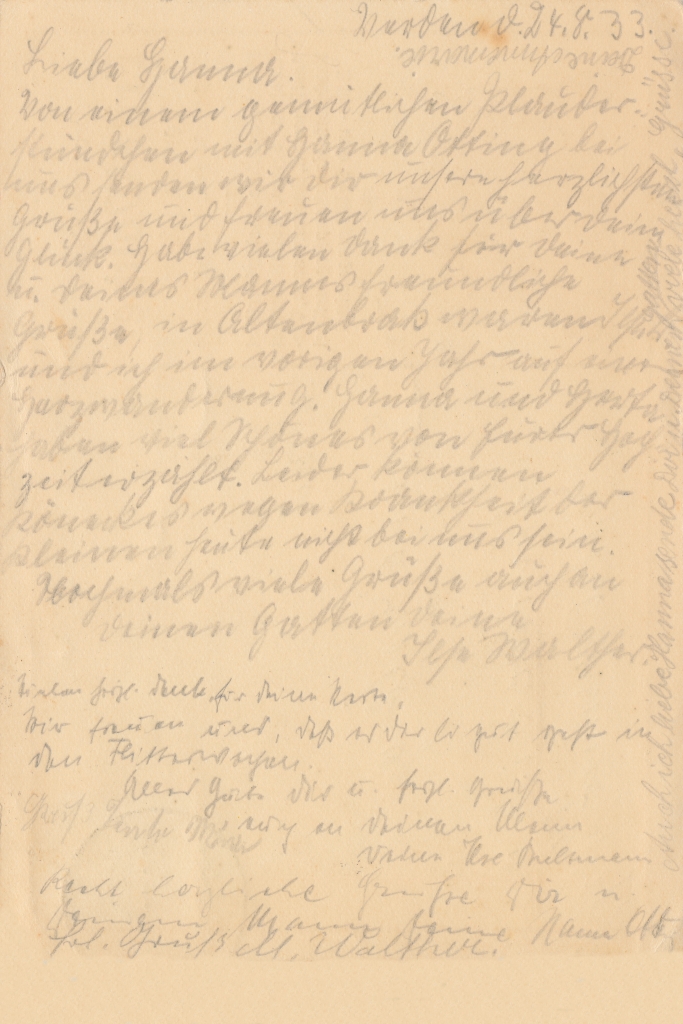 Verden d. 24.8.33.
Liebe Hanna.
Von einem gemütlichen Plauder-
stündchen mit Hanna Otting bei
uns senden wir dir unsere herzlichsten
Grüße und freuen uns über dein
Glück. Habe vielen Dank für deine
u. deines Mannes freundliche
Grüße, in Altenbrak waren Ilse
und ich im vorigen Jahr auf einer
Harzwanderung. Hanna und Herta
haben viel Schönes von Eurer Hoch
zeit erzählt. Leider können
wegen Krankheit der
Kleinen heute nicht bei uns sein.
Nochmals viele Grüße auch an
deinen Gatten deine
Ilse Walther.
Vielen herzl. Dank für deine Karte.
Wir freuen uns, daß es dir so gut geht in
den Flitterwochen.
Alles Gute dir u. herzl. Grüße
auch an deinen Mann
Deine Ilse
Gruß
Recht herzliche Grüße dir u.
deinem Mann deine Hanna Ott
Hrl. Gruß M. Walther.
Auch ich liebe Hanna sende dir u. deinem viele Grüsse.